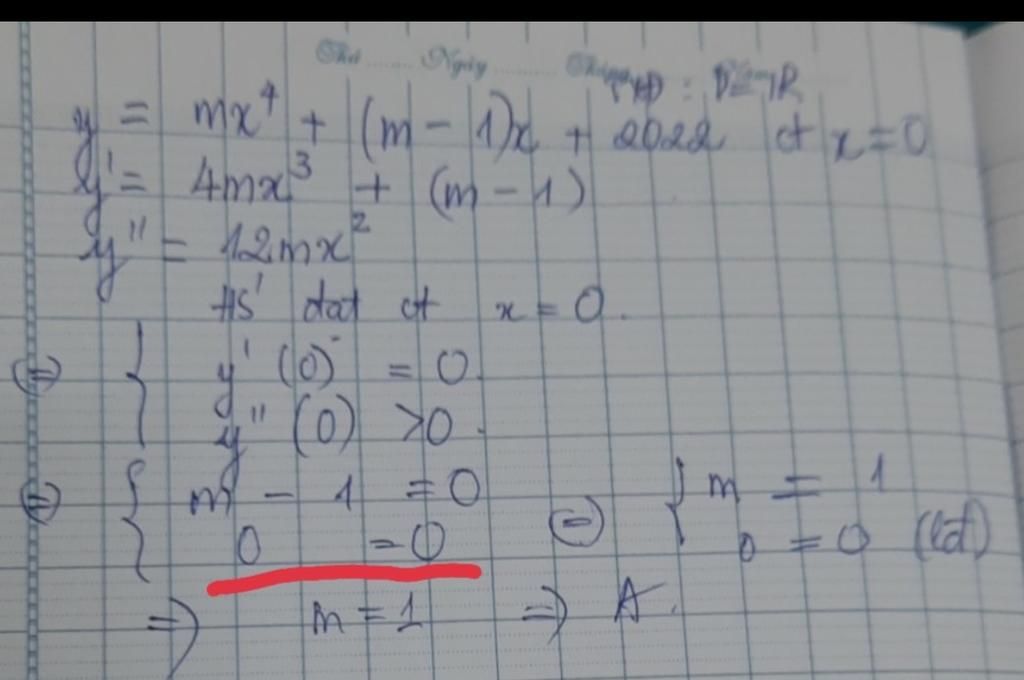 Thứ ........ Ngày ........ Tháng
TXĐ : D = R
y = mx⁴ + (m - 1)x + 2022 ct x = 0
y' = 4mx³ + (m - 1)
y'' = 12mx²
HS' đạt ct x = 0.
⇔ { y'(0) = 0.
y''(0) > 0.
⇔ { m - 1 = 0
0 = 0
⇔ { m = 1
0 = 0 (lđ)
⇒ m = 1 ⇒ A.